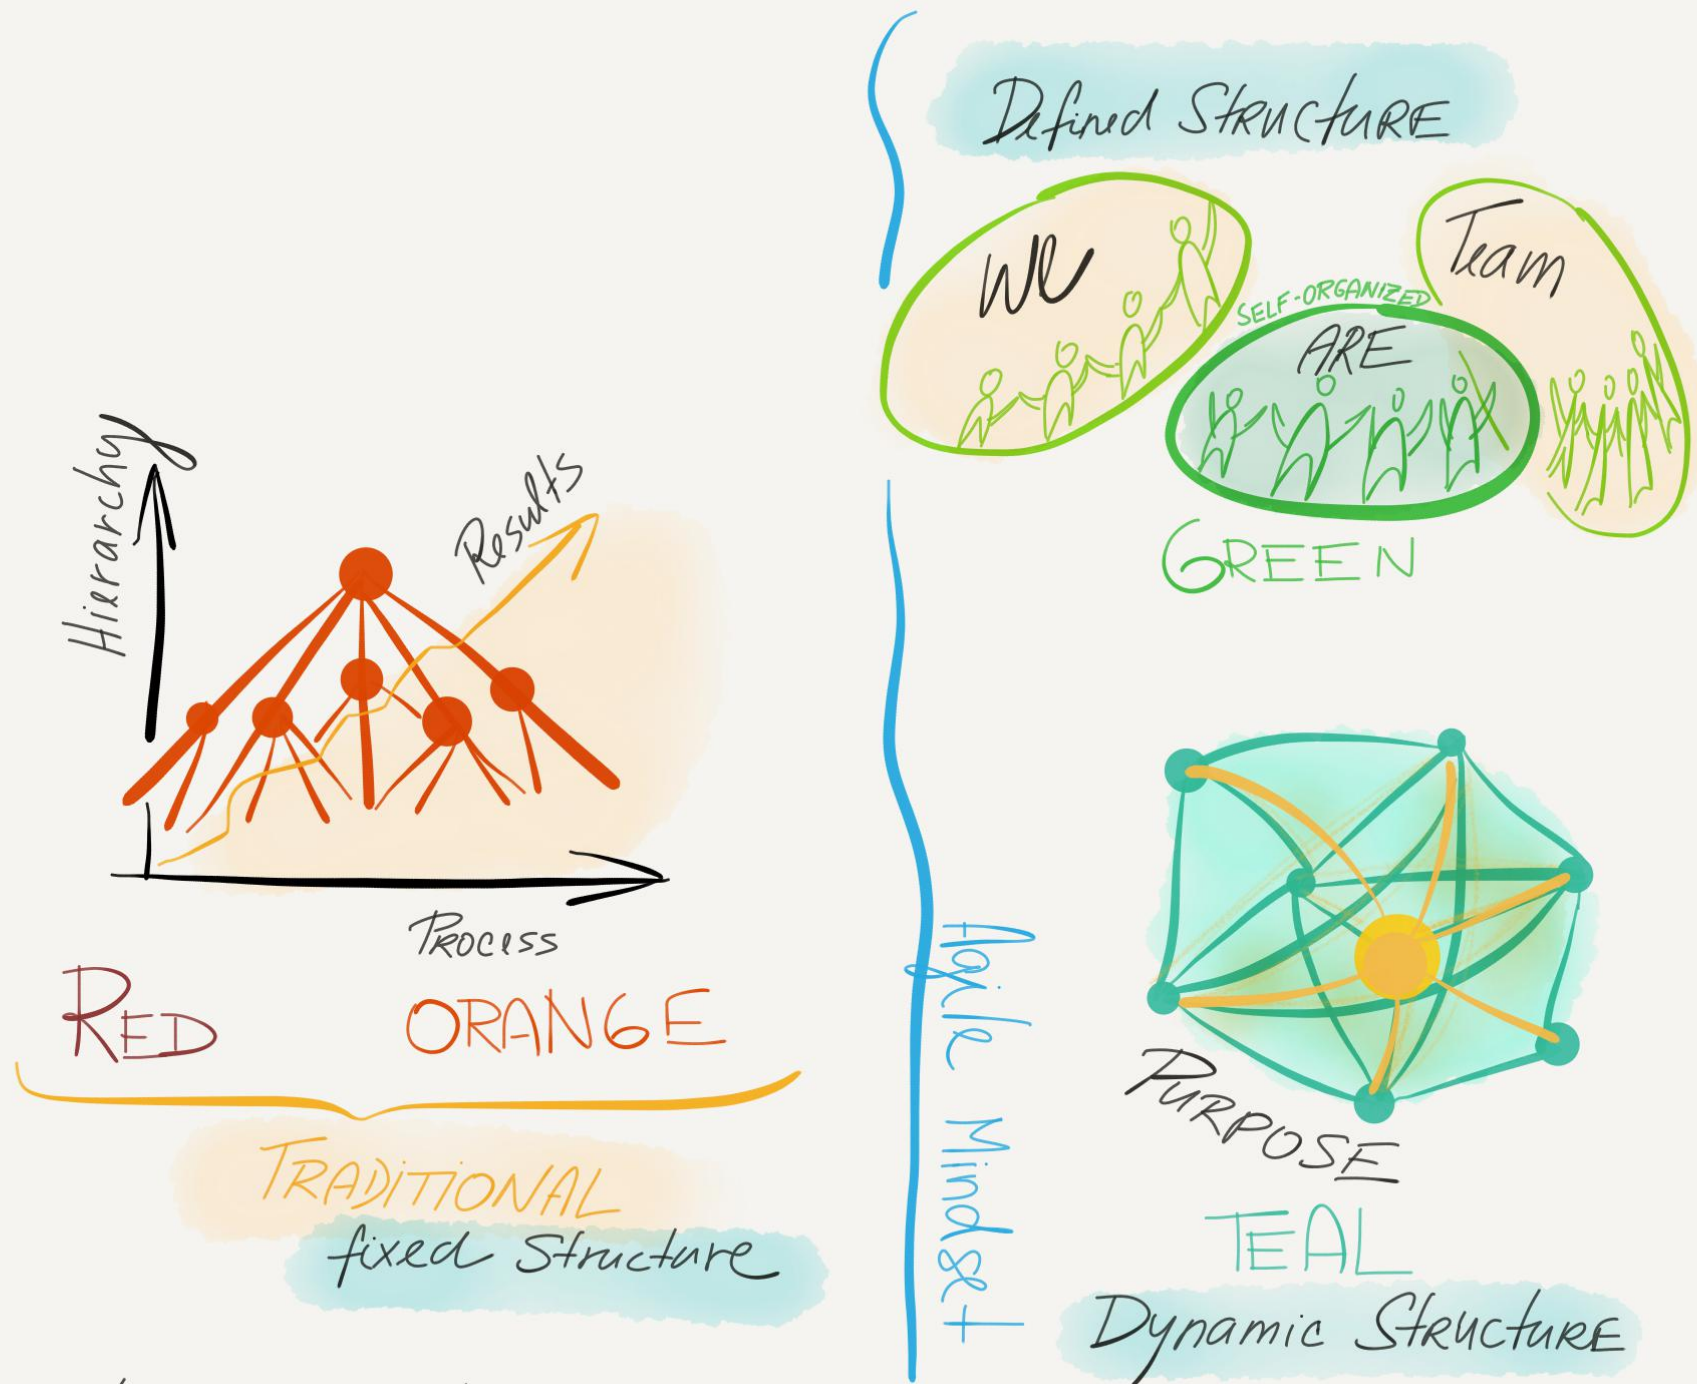 Hierarchy
Results
Process
RED
ORANGE
TRADITIONAL
fixed Structure
Agile Mindset
Defined Structure
We
SELF-ORGANIZED
ARE
Team
GREEN
PURPOSE
TEAL
Dynamic Structure